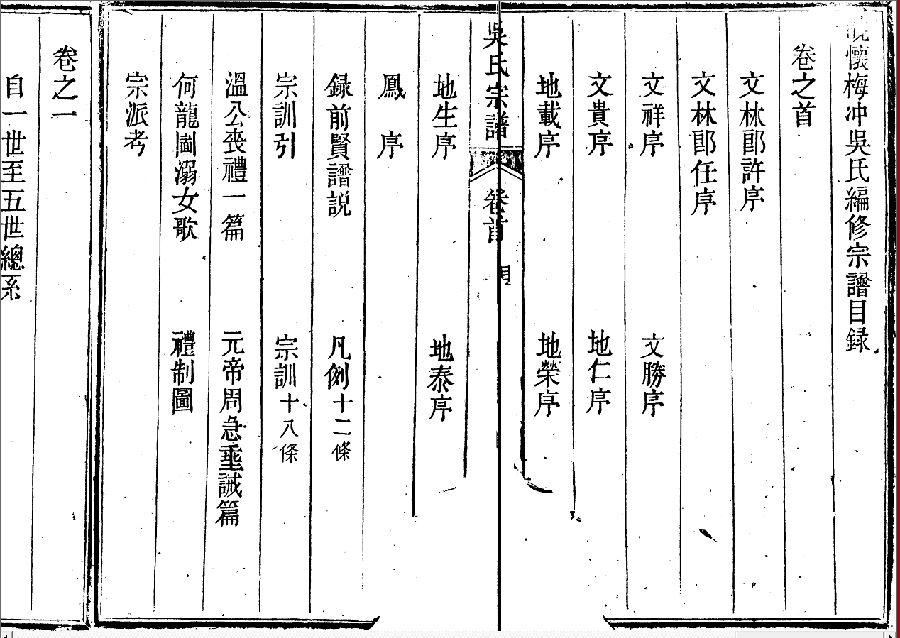 懷梅冲吳氏編修宗譜目録
卷之首
文林郎許序
文林郎任序
文祥序 文勝序
文貴序 地仁序
地載序 地榮序
吳氏宗譜 卷首
地生序 地泰序
鳳 序
録前賢譜説 凡例十二條
宗訓引 宗訓十八條
溫公喪禮一篇 元帝周急垂誡篇
何龍圖溺女歌 禮制圖
宗派考
卷之一
自一世至五世總系